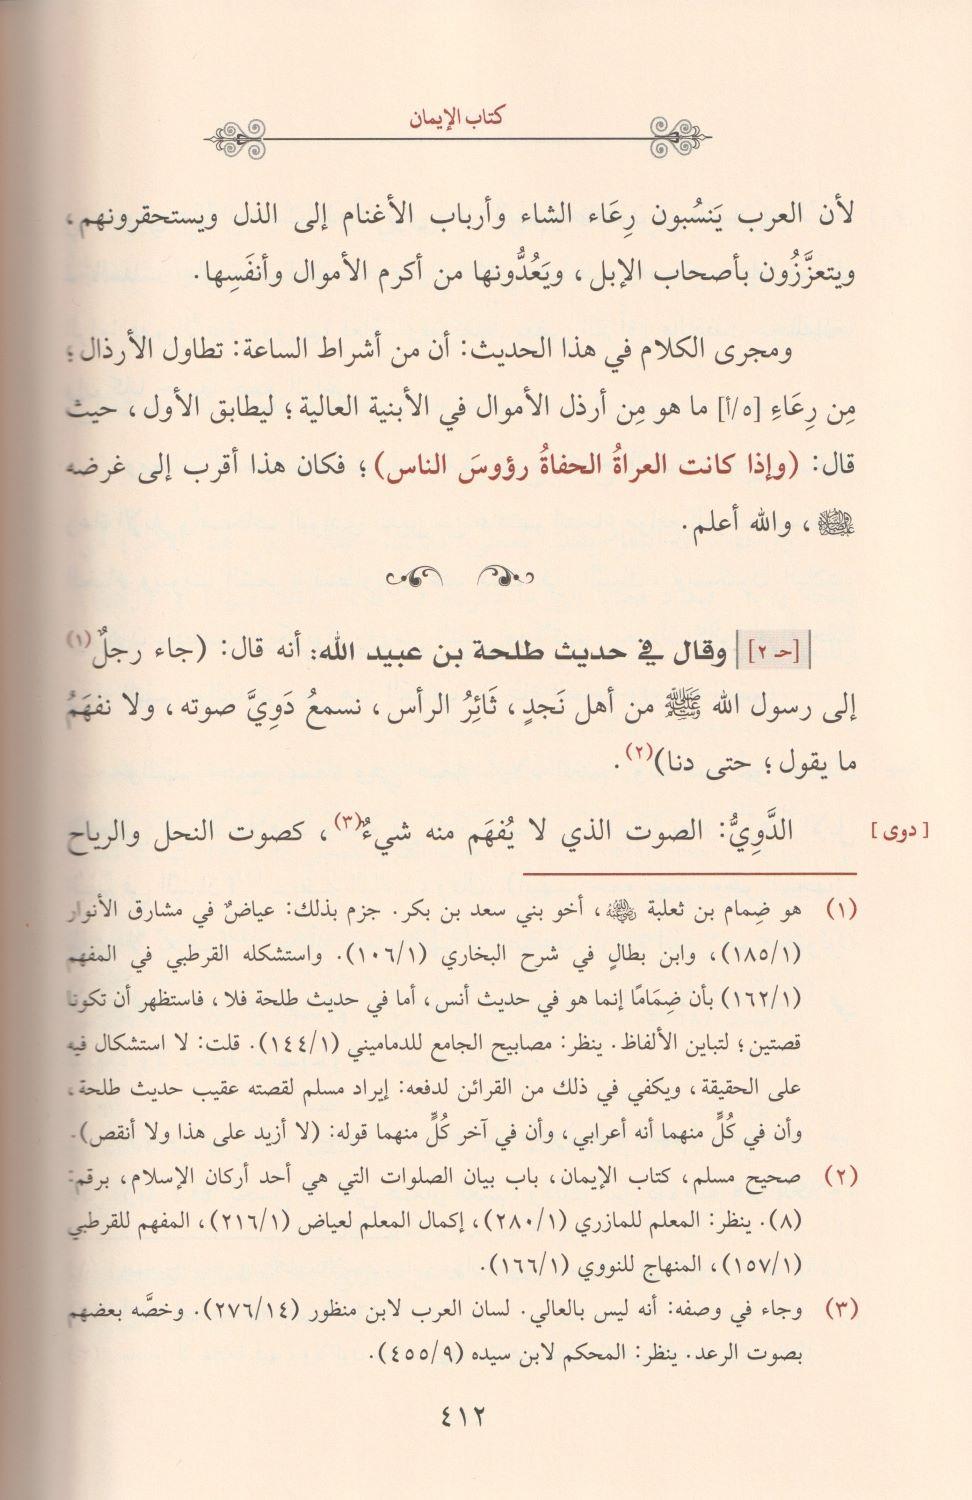 كتاب الإيمان
لأن العرب يَنسُبون رِعَاء الشاء وأرباب الأغنام إلى الذل ويستحقرونهم،
ويتعزَّزُون بأصحاب الإبل، ويَعُدُّونها من أكرم الأموال وأنفَسِها.
ومجرى الكلام في هذا الحديث: أن من أشراط الساعة: تطاول الأرذال؛
مِن رِعَاءِ [٥/أ] ما هو مِن أرذل الأموال في الأبنية العالية؛ ليطابق الأول، حيث
قال: (وإذا كانت العراةُ الحفاةُ رؤوسَ الناس)؛ فكان هذا أقرب إلى غرضه
ﷺ، والله أعلم.
[حـ ٢] وقال في حديث طلحة بن عبيد الله: أنه قال: (جاء رجلٌ(١)
إلى رسول الله ﷺ من أهل نَجدٍ، ثَائِرُ الرأس، نسمعُ دَوِيَّ صوته، ولا نفهَمُ
ما يقول؛ حتى دنا)(٢).
[دوى] الدَّوِيُّ: الصوت الذي لا يُفهَم منه شيءٌ(٣)، كصوت النحل والرياح
(١) هو ضِمام بن ثعلبة رضي الله عنه، أخو بني سعد بن بكر. جزم بذلك: عياضٌ في مشارق الأنوار
(١/١٨٥)، وابن بطالٍ في شرح البخاري (١/١٠٦). واستشكله القرطبي في المفهم
(١/١٦٢) بأن ضِمَامًا إنما هو في حديث أنس، أما في حديث طلحة فلا، فاستظهر أن تكونا
قصتين؛ لتباين الألفاظ. ينظر: مصابيح الجامع للدماميني (١/١٤٤). قلت: لا استشكال فيه
على الحقيقة، ويكفي في ذلك من القرائن لدفعه: إيراد مسلم لقصته عقيب حديث طلحة،
وأن في كُلٍّ منهما أنه أعرابي، وأن في آخر كُلٍّ منهما قوله: (لا أزيد على هذا ولا أنقص).
(٢) صحيح مسلم، كتاب الإيمان، باب بيان الصلوات التي هي أحد أركان الإسلام، برقم:
(٨). ينظر: المعلم للمازري (١/٢٨٠)، إكمال المعلم لعياض (١/٢١٦)، المفهم للقرطبي
(١/١٥٧)، المنهاج للنووي (١/١٦٦).
(٣) وجاء في وصفه: أنه ليس بالعالي. لسان العرب لابن منظور (١٤/٢٧٦). وخصَّه بعضهم
بصوت الرعد. ينظر: المحكم لابن سيده (٩/٤٥٥).
٤١٢